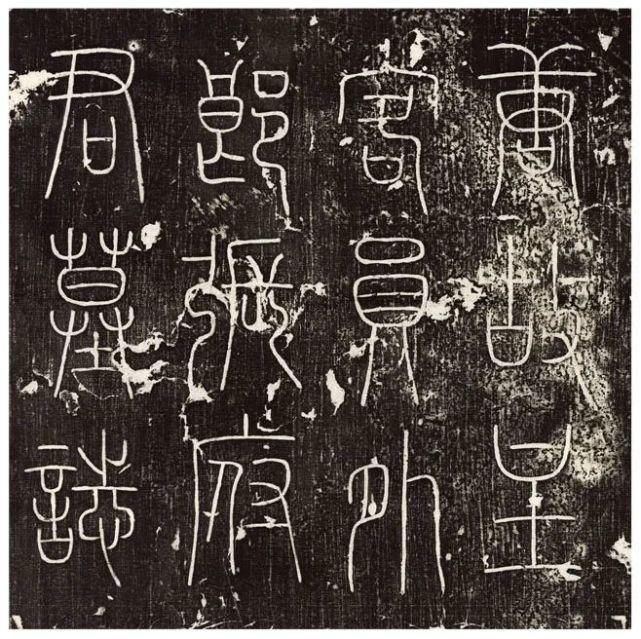 唐故主
客員外
郎張府
君墓誌